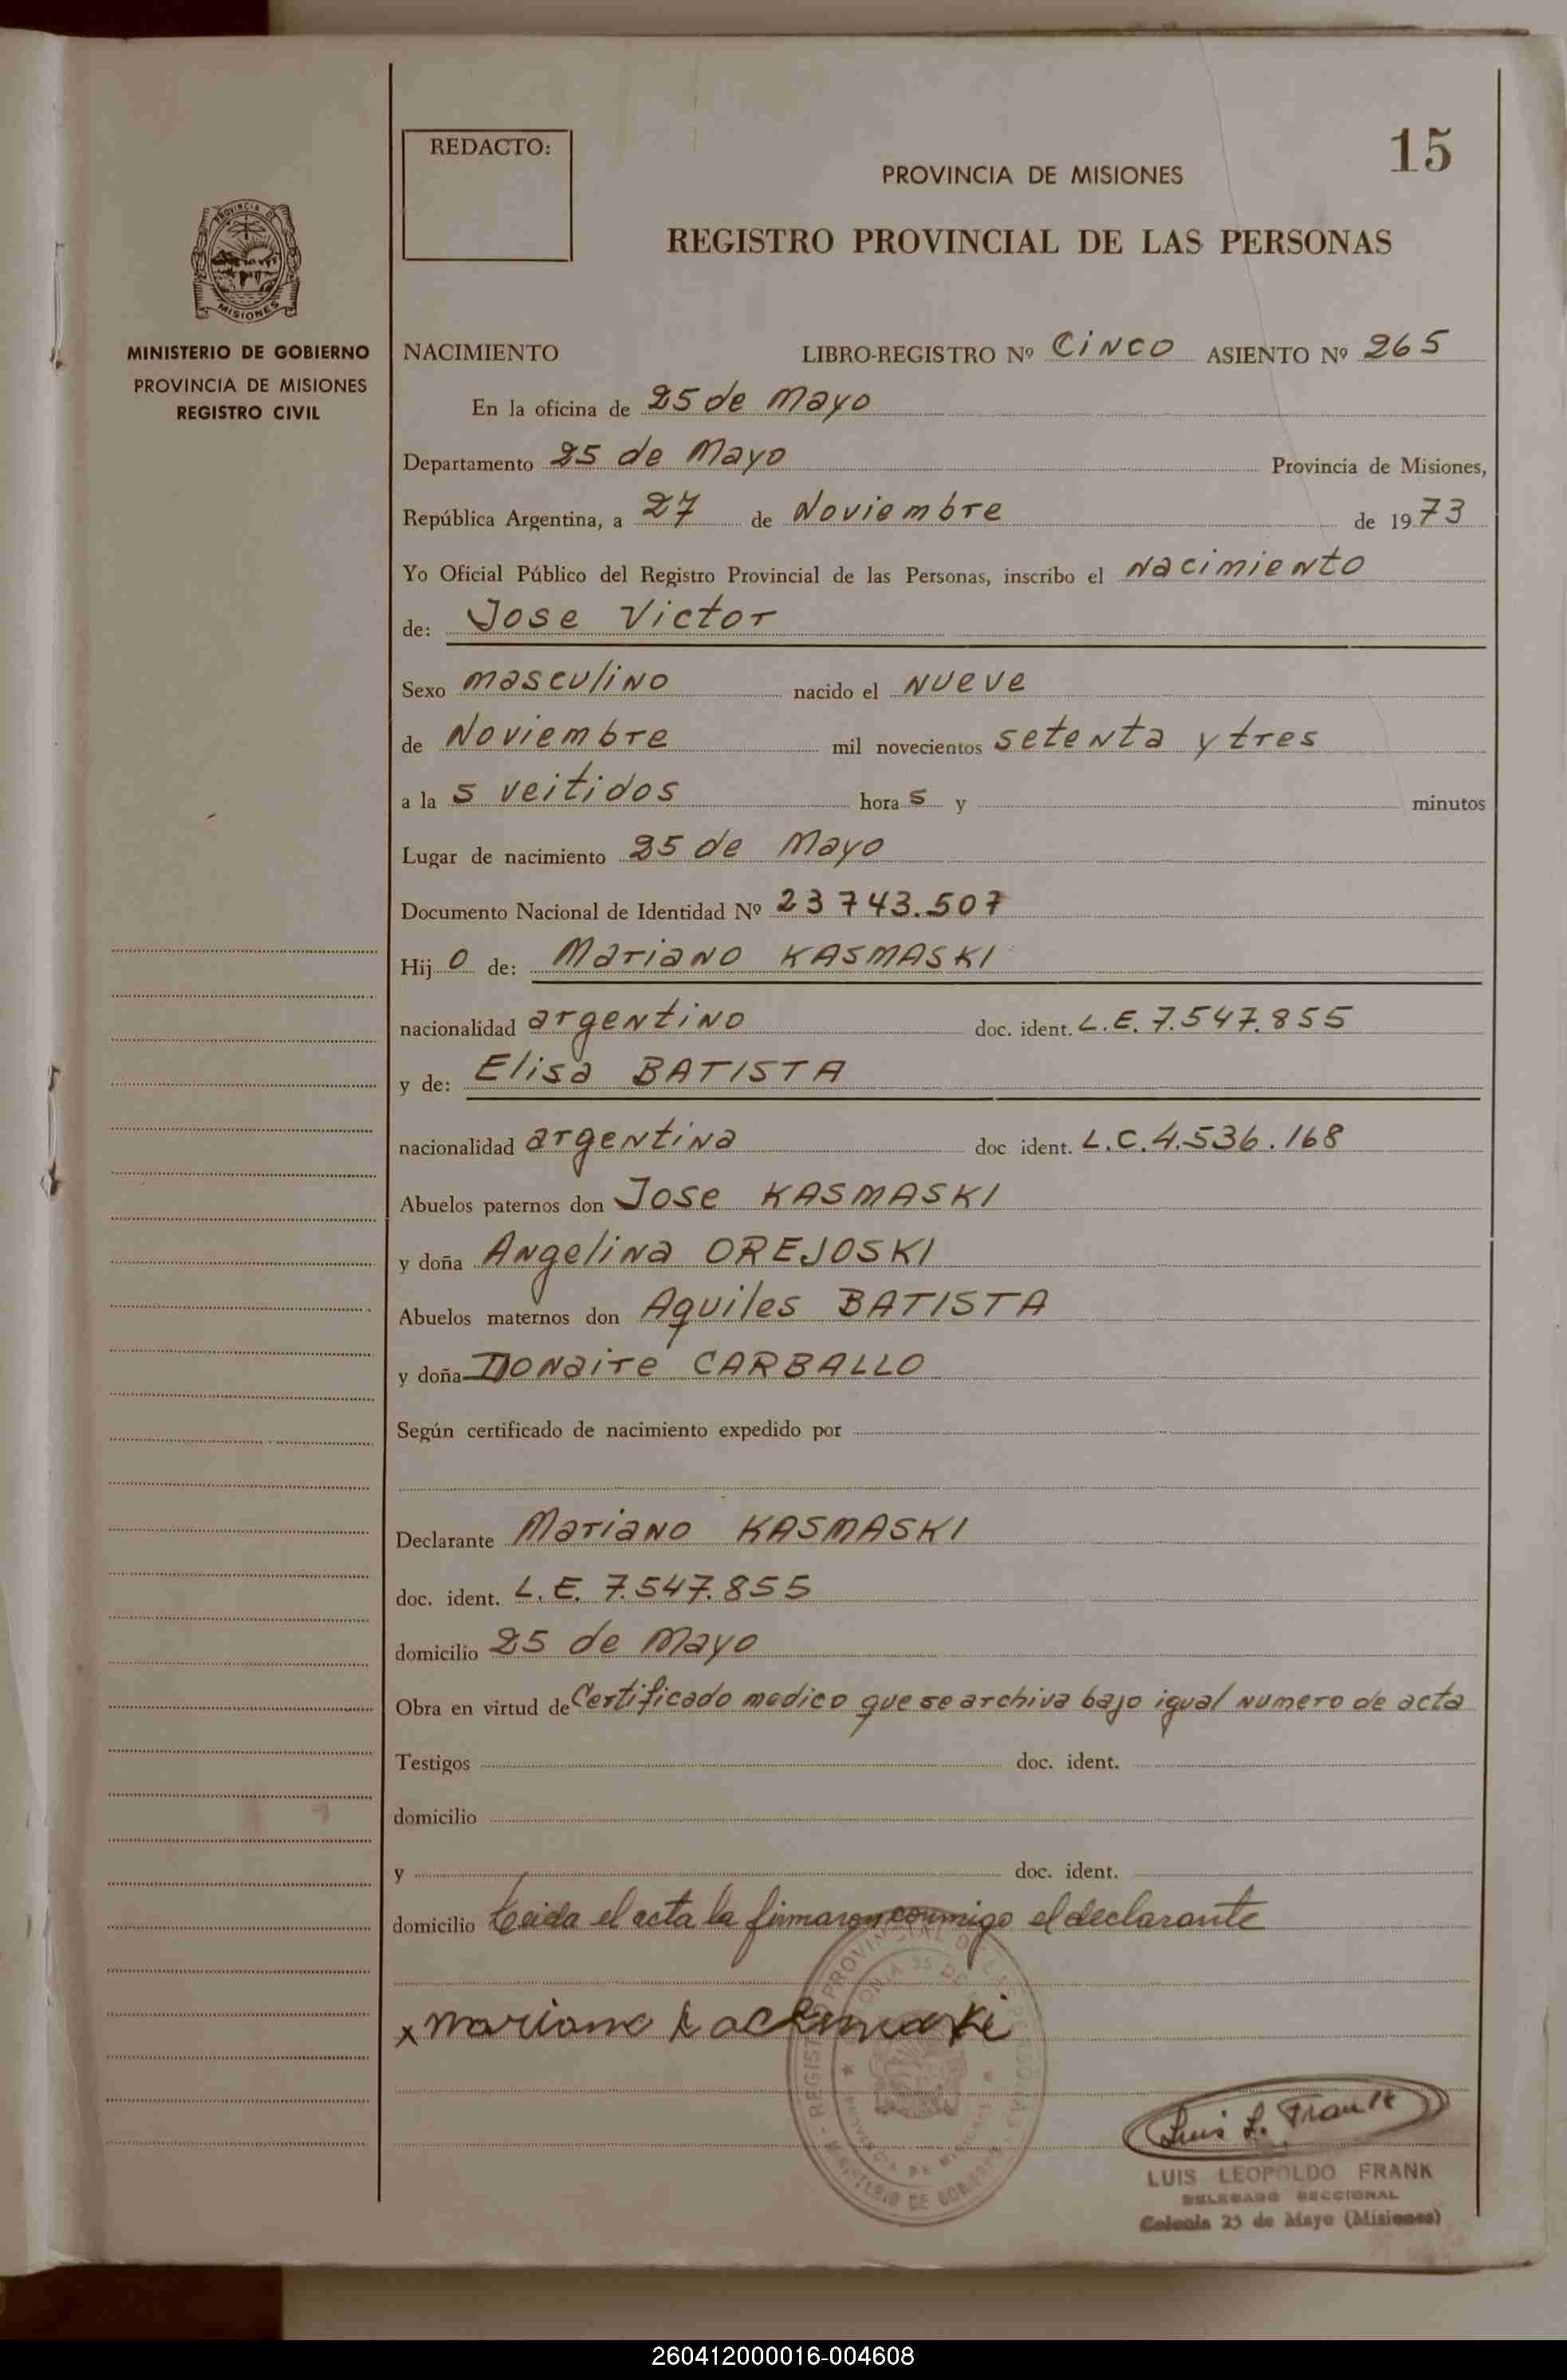 REDACTO:
15
PROVINCIA DE MISIONES
REGISTRO PROVINCIAL DE LAS PERSONAS
PROVINCIA DE
MISIONES
MINISTERIO DE GOBIERNO
PROVINCIA DE MISIONES
REGISTRO CIVIL
NACIMIENTO LIBRO-REGISTRO Nº CINCO ASIENTO Nº 265
En la oficina de 25 de Mayo
Departamento 25 de Mayo Provincia de Misiones,
República Argentina, a 27 de Noviembre de 1973
Yo Oficial Público del Registro Provincial de las Personas, inscribo el Nacimiento
de: Jose Victor
Sexo masculino nacido el Nueve
de Noviembre mil novecientos setenta y tres
a la s veitidos hora s y minutos
Lugar de nacimiento 25 de Mayo
Documento Nacional de Identidad Nº 23 743.507
Hij o de: Mariano KASMASKI
nacionalidad argentino doc. ident. L.E. 7.547.855
y de: Elisa BATISTA
nacionalidad argentina doc ident. L.C. 4.536.168
Abuelos paternos don Jose KASMASKI
y doña Angelina OREJOSKI
Abuelos maternos don Aquiles BATISTA
y doña Donaire CARBALLO
Según certificado de nacimiento expedido por
Declarante Mariano KASMASKI
doc. ident. L.E. 7.547.855
domicilio 25 de Mayo
Obra en virtud de Certificado medico que se archiva bajo igual numero de acta
Testigos doc. ident.
domicilio
y doc. ident.
domicilio Leida el acta la firmaron conmigo el declarante
x mariano
Luis L. Frank
LUIS LEOPOLDO FRANK
DELEGADO SECCIONAL
Colonia 25 de Mayo (Misiones)
260412000016-004608